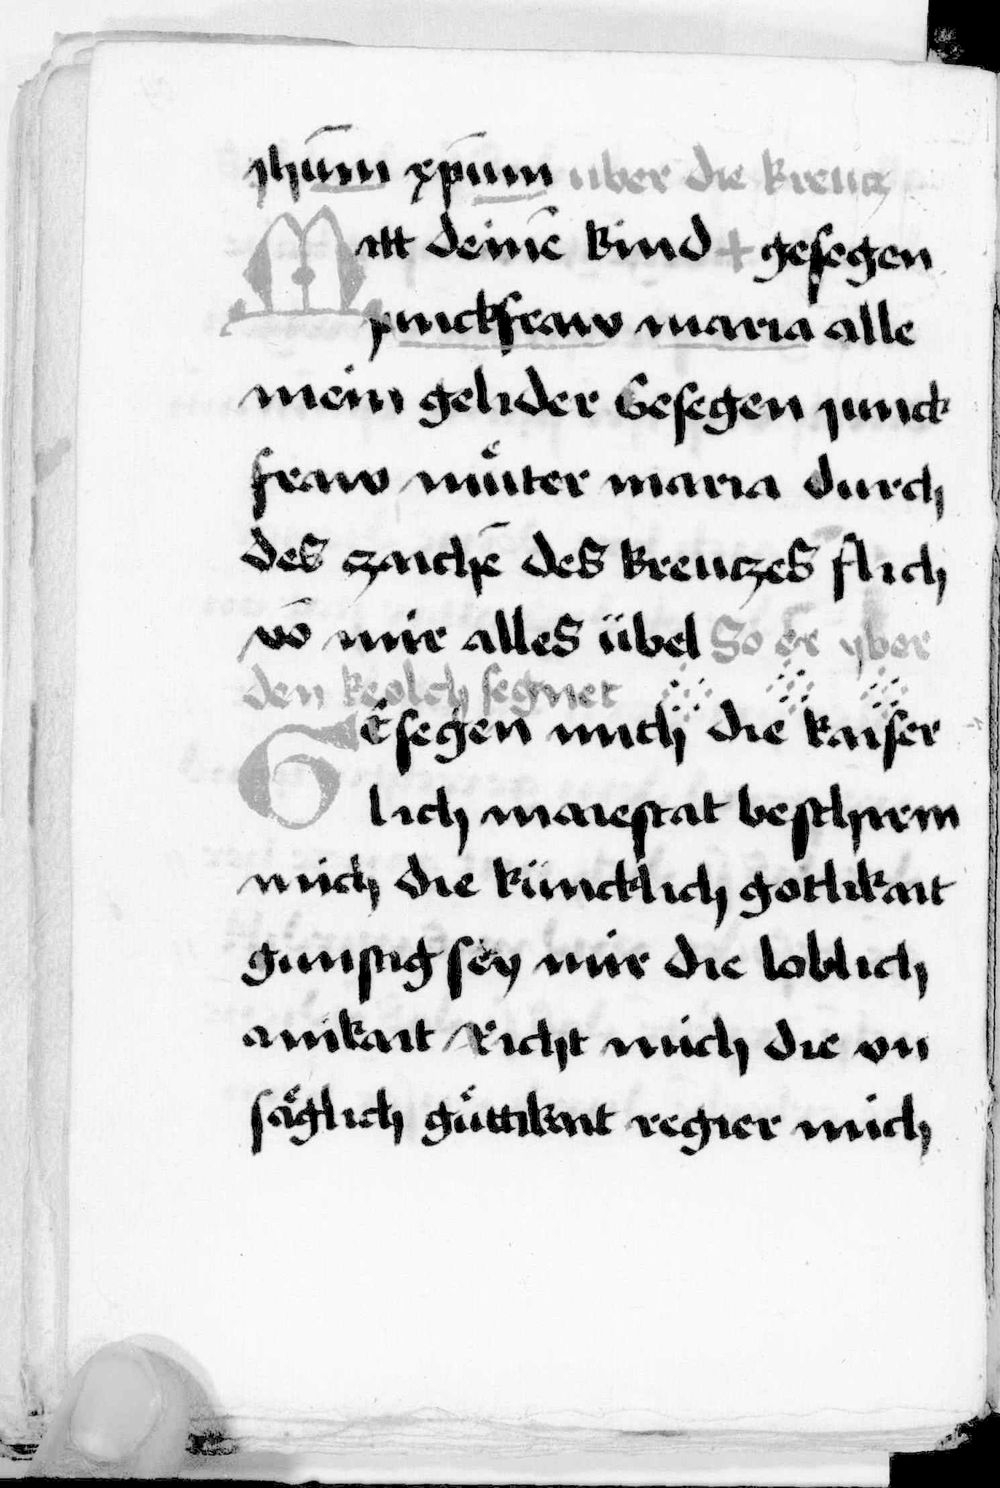 jhūm xp̄um uber die kreutz
Mitt deinē kind + gesegen
junckfraw maria alle
mein gelider Gesegen junck
fraw můter maria durch
des zaichē des kreutzes flich
vō mir alles übel So er yber
den keolch segnet
Gesegen mich die kaiser
lich maiestat beschirem
mich die küncklich gotlikait
gunstig sey mir die loblich
ainikait Richt mich die vn
säglich güttikait regier mich